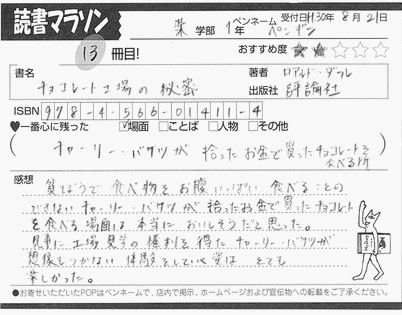 読書マラソン
薬 学部 1年 ペンネーム ペンギン 受付日H30年 8月 21日
13 冊目! おすすめ度 ★★☆☆☆
書名 チョコレート工場の秘密 著者 ロアルド・ダール
出版社 評論社
ISBN 978-4-566-01411-4
♥一番心に残った ☑場面 □ことば □人物 □その他
チャーリー・バケツが 拾ったお金で買ったチョコレートを
食べる所
感想 貧ぼうで 食べ物を お腹いっぱい 食べることの
できない チャーリー・バケツが 拾ったお金で買ったチョコレート
を食べる 場面は 本当に おいしそうだと思った。
見事に 工場 見学の 権利を得た チャーリー・バケツが
想像もつかない 体験をしていく姿は とても
楽しかった。
●お寄せいただいたPOPはペンネームで、店内で掲示、ホームページおよび宣伝物への転載をご了承ください。